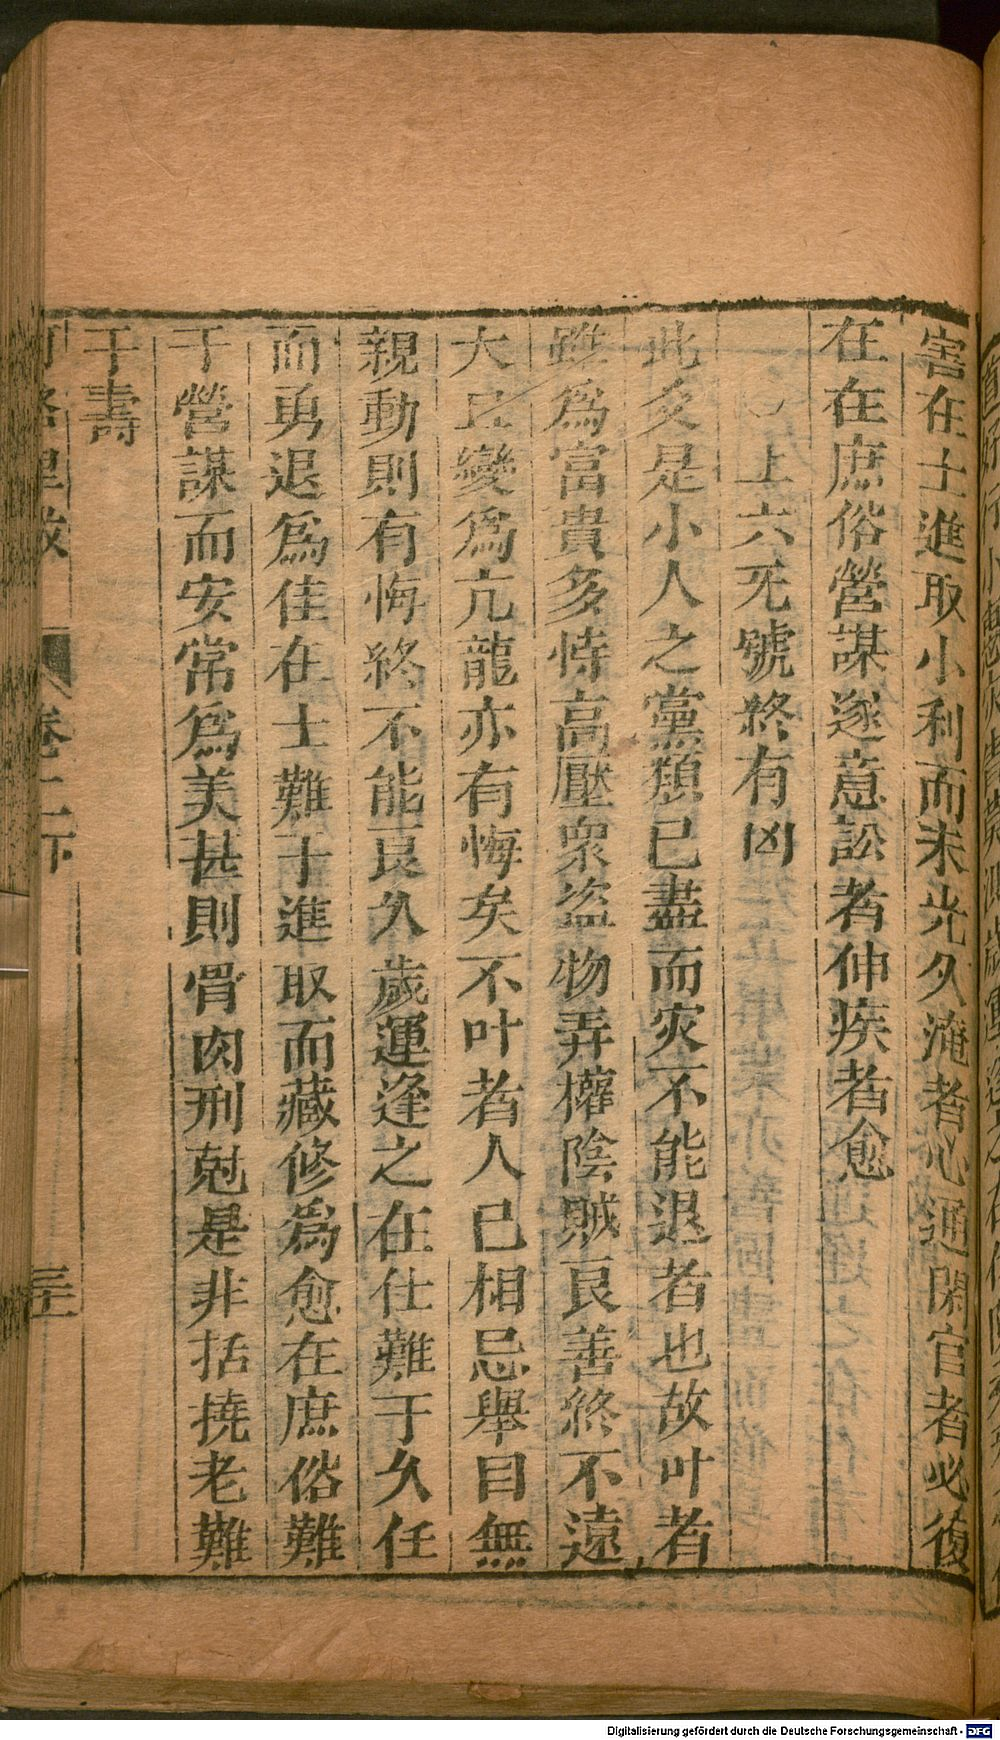 害在士進取小利而未光久淹者必通閑官者必復
在在庶俗營謀遂意訟者伸疾者愈
上六无號終有凶
此爻是小人之黨類已盡而灾不能退者也故叶者
雖爲富貴多恃高壓衆盗物弄權陰賊良善終不遠
大且變爲亢龍亦有悔矣不叶者人已相忌舉目無
親動則有悔終不能良久歲運逢之在仕難于久任
而勇退爲佳在士難于進取而藏修爲愈在庶俗難
于營謀而安常爲美甚則骨肉刑尅是非括撓老難
于壽
卷十一下
Digitalisierung gefördert durch die Deutsche Forschungsgemeinschaft - DFG